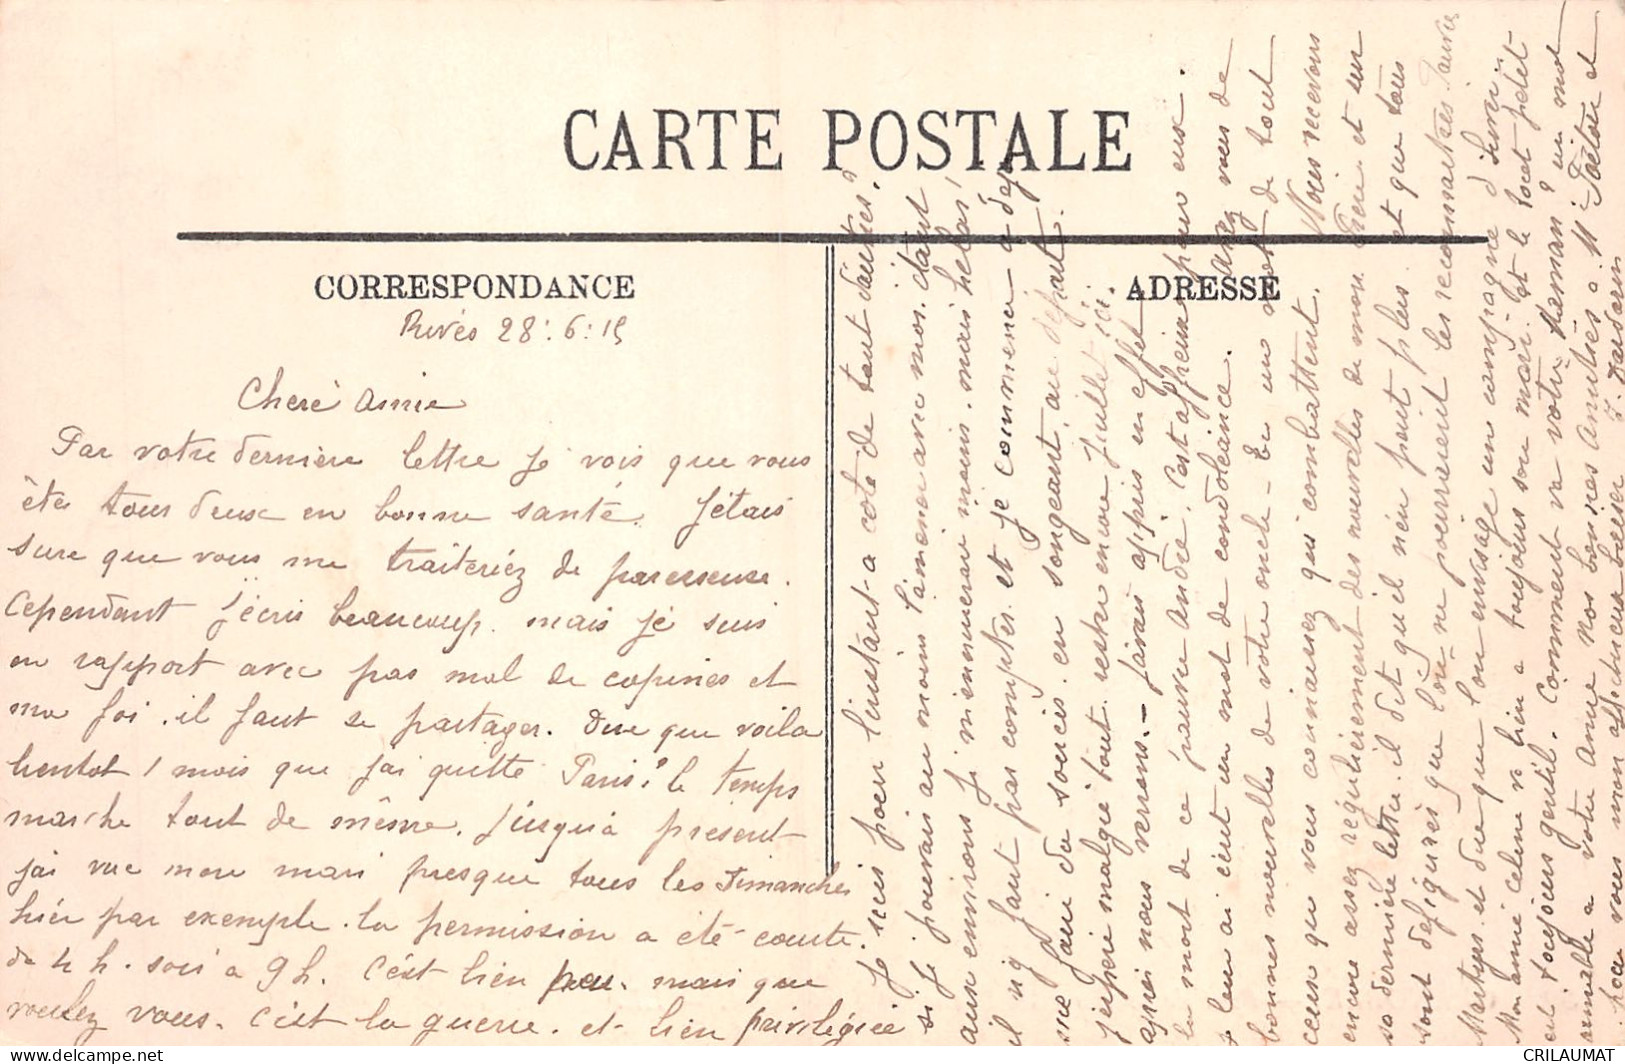 CARTE POSTALE
CORRESPONDANCE
ADRESSE
Rivés 28:6:15
Cheré Amie
Par votre dernière lettre je vois que vous
ête tous deux en bonne santé. Jétais
sure que vous me traiteriéz de paresseuse.
Cependant j'écris beaucoup. mais je suis
en rapport avec pas mal de copines et
ma foi. il faut se partager. Dire que voila
bientot 1 mois que j'ai quitté Paris! le temps
marche tout de même. Jusqu'à présent
j'ai vue mon mari presque tous les Dimanches
hiér par exemple. la permission a été courte.
de 4 h. soir à 9 h. C'est bien peu. mais que
voulez vous. C'est la guerre. et bien privilégiée
je suis pour l'instant a coté de tant d'autres?
si je pouvais au moins l'amener avec moi. étant
aux environs je m'ennuierai moins. mais helas!
il n'y faut pas compter. et je commence a déjà
me faire du soucies en songeant au départ.
j'espere malgré tout rester encore juillet ici.
apres nous verrons. - j'avais appris en effet
la mort de ce pauvre André. C'est affreux pour eux.
je leur ai écrit un mot de condoléance. Avez vous de
bonnes nouvelles de votre oncle - En un mot de tout
ceux que vous connaissez qui combattent. Nous recevons
encore assez réguliérement des nouvelles de mon frère et sur
sa derniére lettre. il dit qu'il n'en peut plus. et que tous
sont défigurés que l'on ne pourraient les reconnaitres. Pauvres
Martyrs. et dire que l'on envisage un campagne d'hiver
Mon amie Celine va bien a toujours son mari. Et le tout petit
est toujours gentil. Comment va votre Maman? un mot
aimable a votre Amie nos bonnes Amitiés a Mr
pour vous mon affectueux baiser